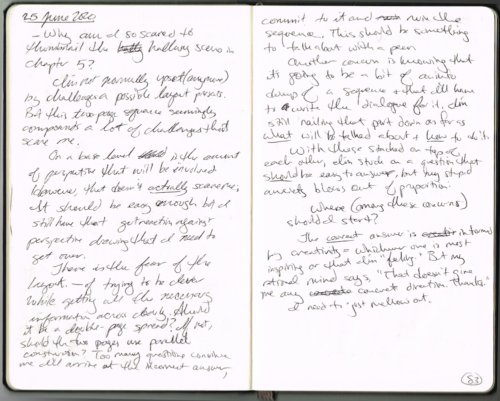 25 June 2020
- Why am I so scared to
thumbnail the hallway scene in
chapter 5?
I'm not normally upset (anymore)
by challenges a possible layout presents.
But this two page sequence seemingly
compounds a lot of challenges that
scare me.
On a base level is the amount
of perspective that will be involved
However, that doesn't actually scare me,
It should be easy enough but I
still have that gut reaction against
perspective drawing that I need to
get over.
There is the fear of the
layout. - of trying to be clever
while getting all the necessary
information across clearly. Should
it be a double-page spread? If not,
should the two pages use parallel
construction? Too many questions convince
me I'll arrive at the incorrect answer,
commit to it and ruin the
sequence. This should be something
to talk about with a peer.
Another concern is knowing that
it's going to be a bit of an info
dump of a sequence & that I'll have
to write the dialogue for it. I'm
still nailing that part down as far as
what will be talked about & how to do it.
With these stacked on top of
each other, I'm stuck on a question that
should be easy to answer, but my stupid
anxiety blows out of proportion:
Where (among these concerns)
should I start?
The correct answer is in terms
by creativity - whichever one is most
inspiring or that I'm "feeling." But my
rational mind says, "That doesn't give
me any concrete direction. Thanks."
I need to just mellow out.
83